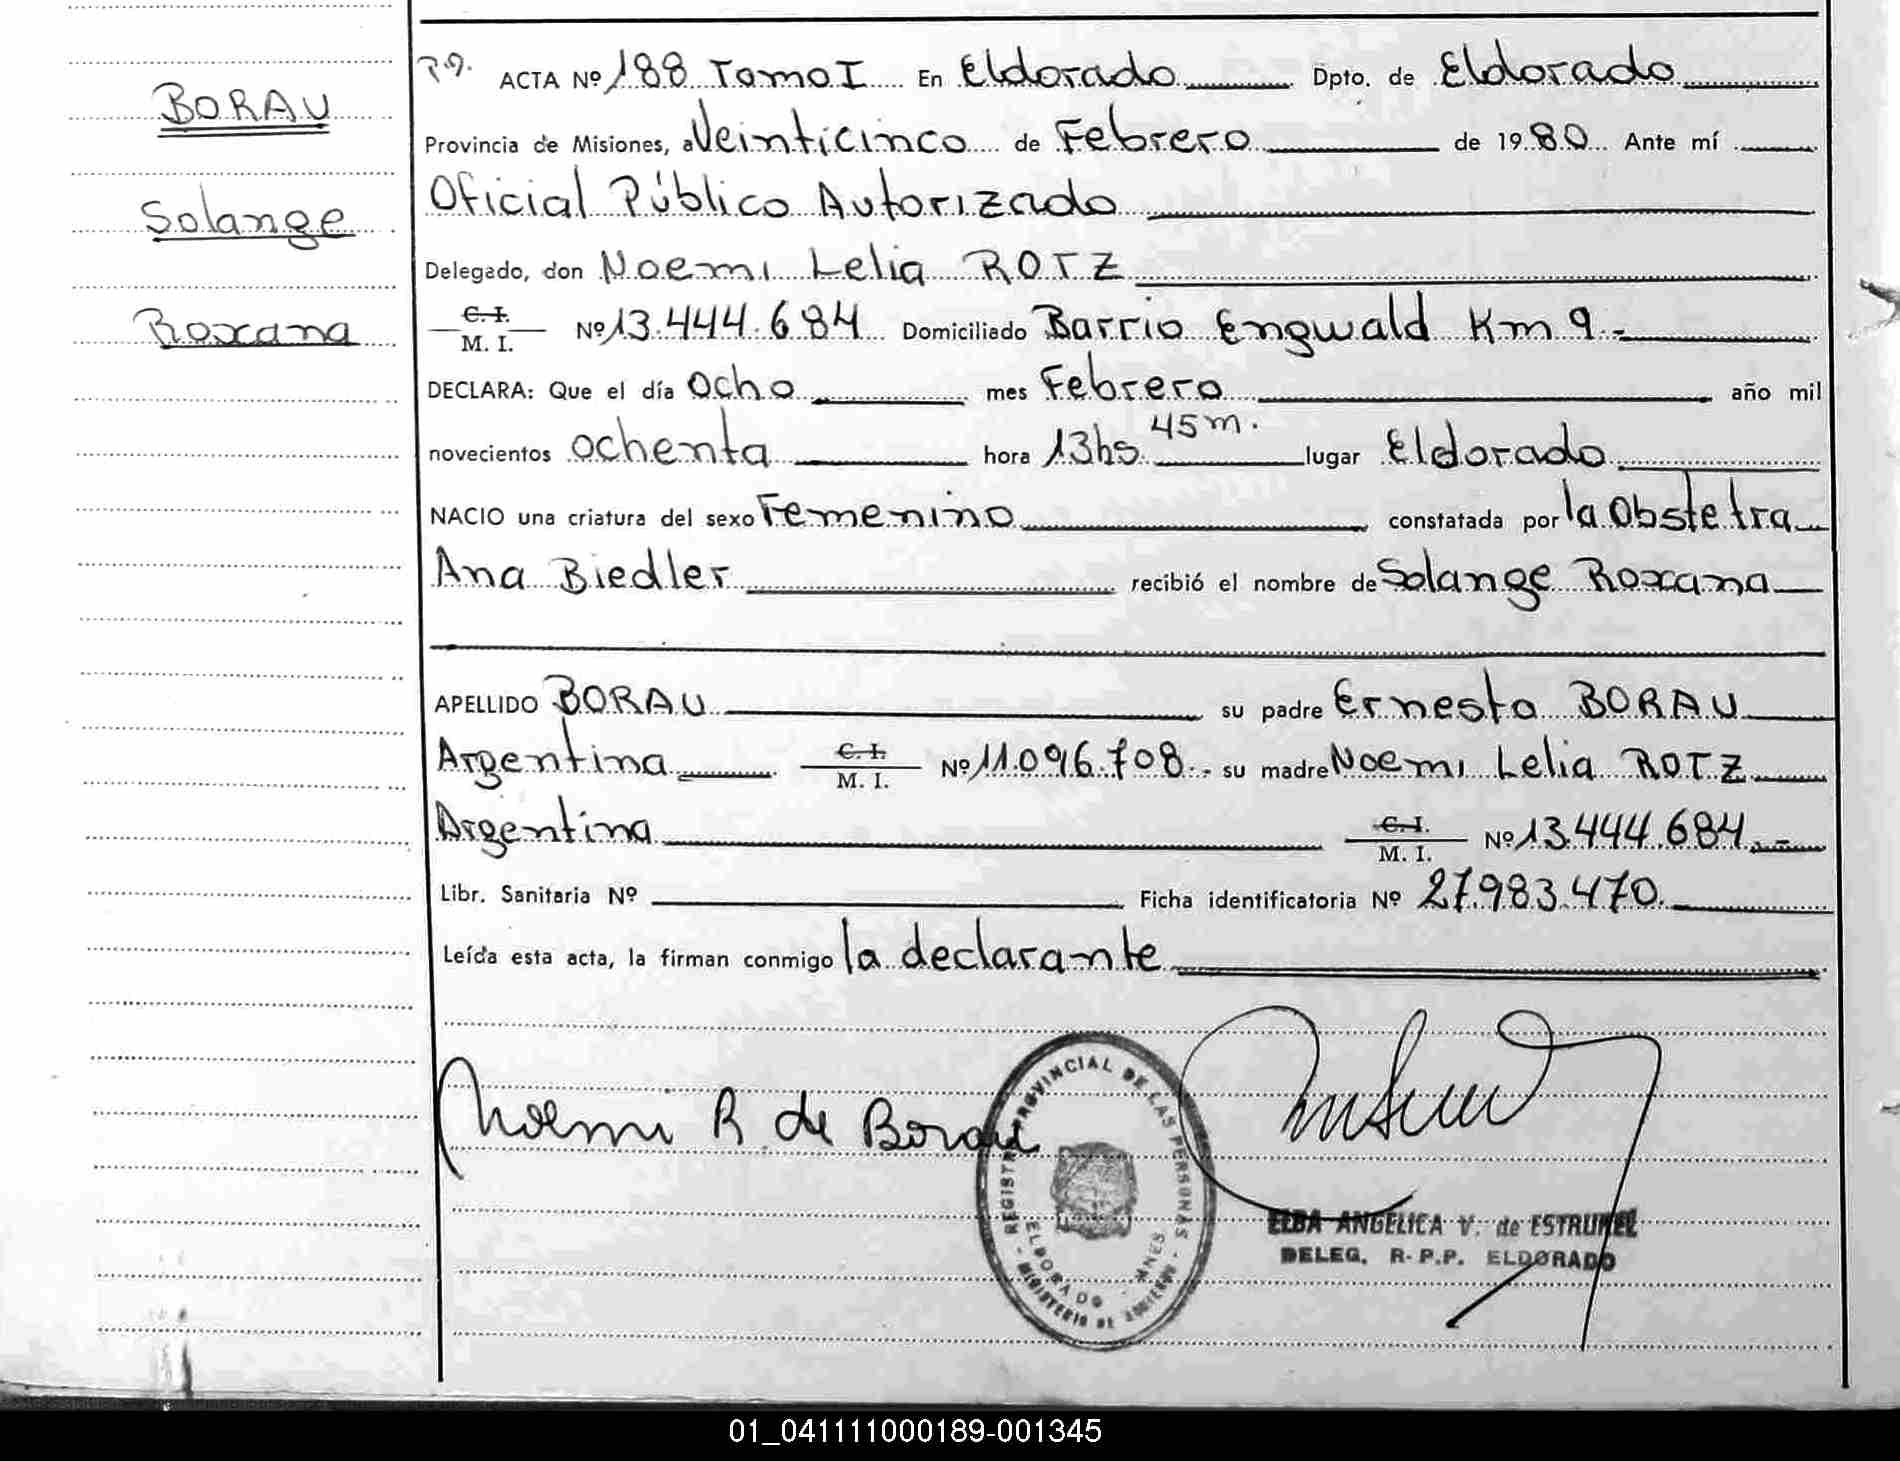 BORAU
Solange
Roxana
ACTA Nº 188 Tomo I En Eldorado Dpto. de Eldorado
Provincia de Misiones, a Veinticinco de Febrero de 1980 Ante mí
Oficial Público Autorizado
Delegado, don Noemi Lelia ROTZ
C. I. M. I. Nº 13.444.684 Domiciliado Barrio Engwald Km 9.-
DECLARA: Que el día Ocho mes Febrero año mil
novecientos ochenta hora 13hs 45m. lugar Eldorado
NACIO una criatura del sexo Femenino constatada por la Obstetra
Ana Biedler recibió el nombre de Solange Roxana
APELLIDO BORAU su padre Ernesto BORAU
Argentina C. I. M. I. Nº 11.096.708.- su madre Noemi Lelia ROTZ
Argentina C. I. M. I. Nº 13.444.684.-
Libr. Sanitaria Nº Ficha identificatoria Nº 27.983.470.
Leída esta acta, la firman conmigo la declarante
Noemi R. de Borau
REGISTRO PROVINCIAL DE LAS PERSONAS
ELDORADO
MINISTERIO DE GOBIERNO
ELBA ANGELICA V. de ESTRUREL
DELEG. R.P.P. ELDORADO
01_041111000189-001345